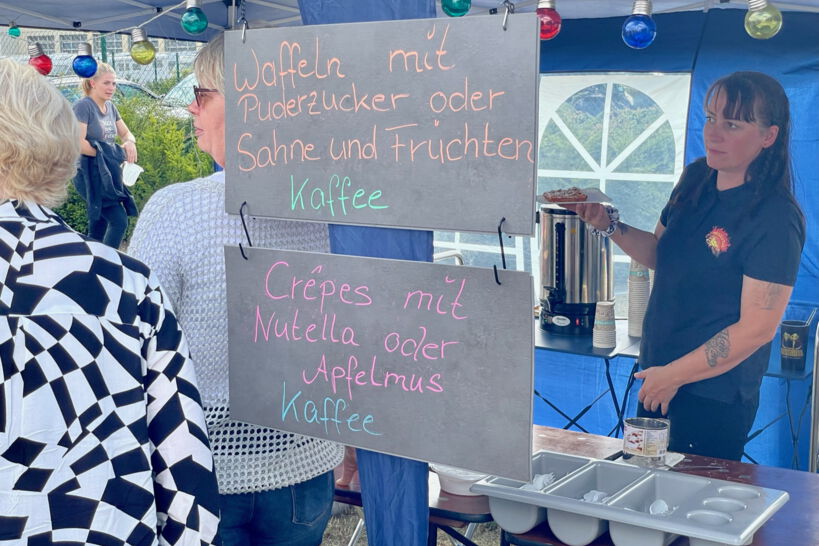 Waffeln mit
Puderzucker oder
Sahne und Früchten
Kaffee
Crêpes mit
Nutella oder
Apfelmus
Kaffee